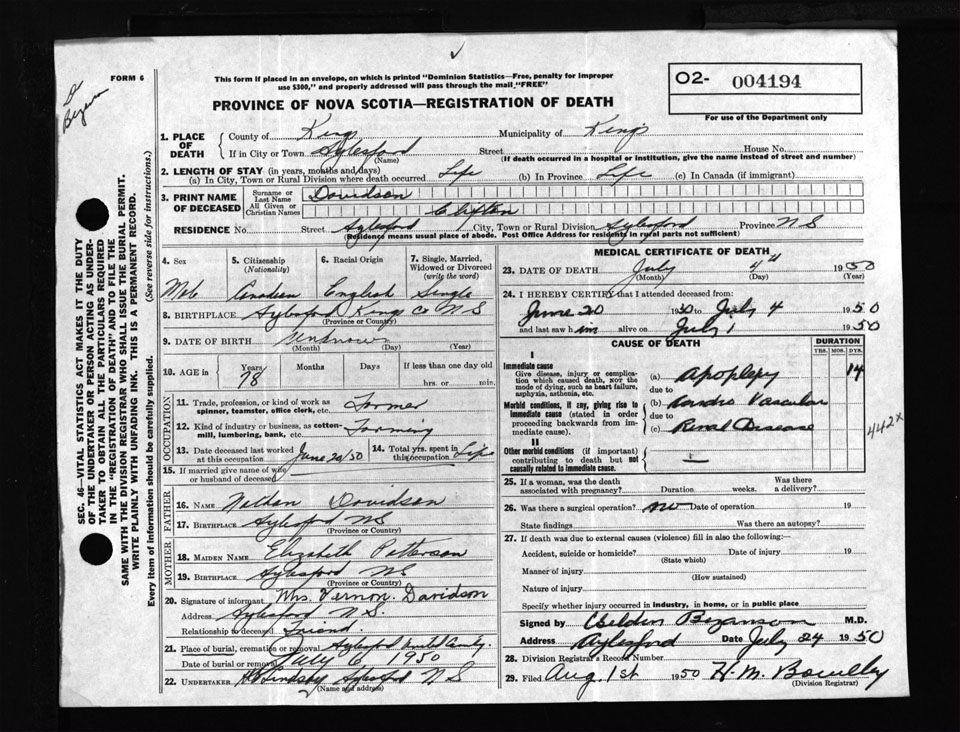 ✓
FORM 6
Dr
This form if placed in an envelope, on which is printed "Dominion Statistics—Free, penalty for improper
use $300," and properly addressed will pass through the mail "FREE"
PROVINCE OF NOVA SCOTIA—REGISTRATION OF DEATH
O2- 004194
For use of the Department only
1. PLACE OF DEATH { County of Kings Municipality of Kings
If in City or Town Aylesford Street House No.
(Name) (If death occurred in a hospital or institution, give the name instead of street and number)
2. LENGTH OF STAY (in years, months and days)
(a) In City, Town or Rural Division where death occurred Life (b) In Province Life (c) In Canada (if immigrant)
3. PRINT NAME OF DECEASED { Surname or Last Name Davidson
All Given or Christian Names Clifton
RESIDENCE No. Street Aylesford City, Town or Rural Division Aylesford Province N S
(Residence means usual place of abode. Post Office Address for residents in rural parts not sufficient)
4. Sex 5. Citizenship (Nationality) 6. Racial Origin 7. Single, Married, Widowed or Divorced (write the word)
Male Canadian English Single
8. BIRTHPLACE Aylesford Kings Co N S
(Province or Country)
9. DATE OF BIRTH Unknown
(Month) (Day) (Year)
10. AGE in Years Months Days If less than one day old
78 hrs. or min.
OCCUPATION
11. Trade, profession, or kind of work as spinner, teamster, office clerk, etc. Farmer
12. Kind of industry or business, as cotton-mill, lumbering, bank, etc. Farming
13. Date deceased last worked at this occupation June 20/50 14. Total yrs. spent in this occupation Life
15. If married give name of wife or husband of deceased
FATHER
16. Name Nathan Davidson
17. Birthplace Aylesford N S
(Province or Country)
MOTHER
18. Maiden Name Elizabeth Patterson
19. Birthplace Aylesford N S
(Province or Country)
20. Signature of informant Mrs. Vernon Davidson
Address Aylesford N.S.
Relationship to deceased friend.
21. Place of burial, cremation or removal Aylesford
Date of burial or removal July 6 1950
22. Undertaker Lindsay Aylesford N S
(Name and address)
MEDICAL CERTIFICATE OF DEATH
23. DATE OF DEATH July 4th 1950
(Month) (Day) (Year)
24. I HEREBY CERTIFY that I attended deceased from:
June 20 1950 to July 4 1950
and last saw him alive on July 1 1950
CAUSE OF DEATH DURATION
YRS. MOS. DYS.
I
Immediate cause
Give disease, injury or complication which caused death, NOT the mode of dying, such as heart failure, asphyxia, asthenia, etc.
(a) Apoplexy 14
due to
Morbid conditions, if any, giving rise to immediate cause (stated in order proceeding backwards from immediate cause).
(b) Cardio Vascular
due to
(c) Renal Disease
442x
II
Other morbid conditions (if important) contributing to death but not causally related to immediate cause.
25. If a woman, was the death associated with pregnancy? Duration weeks. Was there a delivery?
26. Was there a surgical operation? no Date of operation 19
State findings Was there an autopsy?
27. If death was due to external causes (violence) fill in also the following:—
Accident, suicide or homicide? Date of injury 19
(State which)
Manner of injury
(How sustained)
Nature of injury
Specify whether injury occurred in industry, in home, or in public place
Signed by Belden Bezanson M.D.
Address Aylesford Date July 24 1950
28. Division Registrar's Record Number
29. Filed Aug. 1st 1950 H. M.
(Division Registrar)
SEC. 46—VITAL STATISTICS ACT MAKES IT THE DUTY
OF THE UNDERTAKER OR PERSON ACTING AS UNDER-
TAKER TO OBTAIN ALL THE PARTICULARS REQUIRED
IN THE "REGISTRATION OF DEATH" AND TO FILE THE
SAME WITH THE DIVISION REGISTRAR WHO SHALL ISSUE THE BURIAL PERMIT.
WRITE PLAINLY WITH UNFADING INK. THIS IS A PERMANENT RECORD.
Every item of information should be carefully supplied. (See reverse side for instructions.)